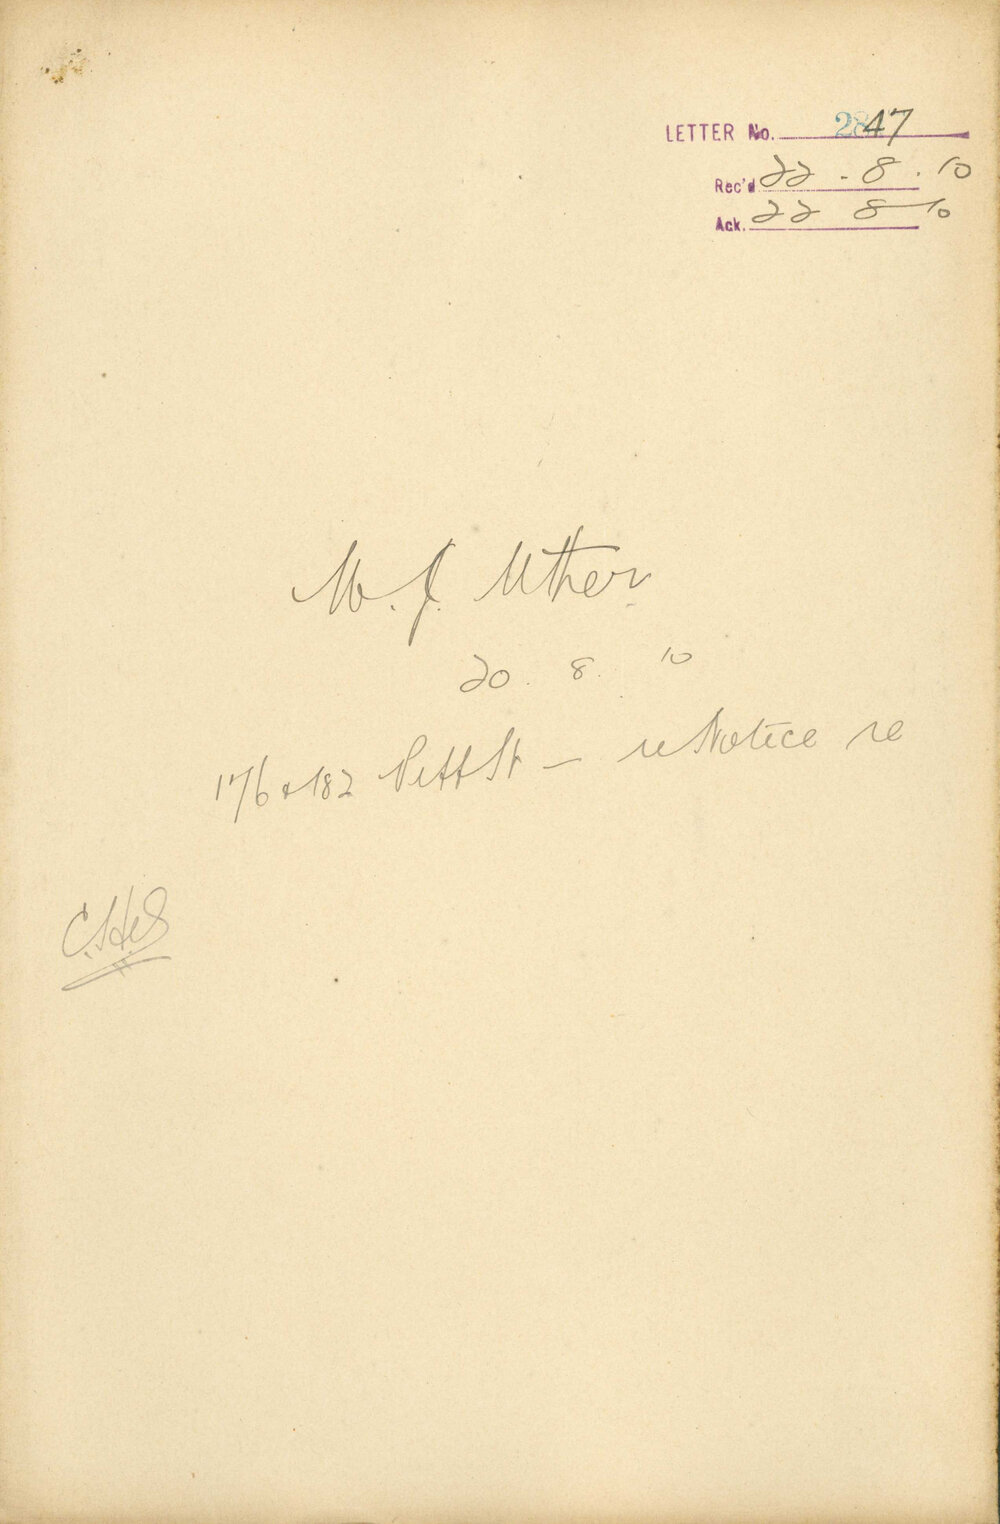 LETTER No. 2847
Rec'd 22 . 8 . 10
Ack. 22 8 10
M. J. Uther
20 . 8 . 10
176 & 182 Pitt St — re Notice re